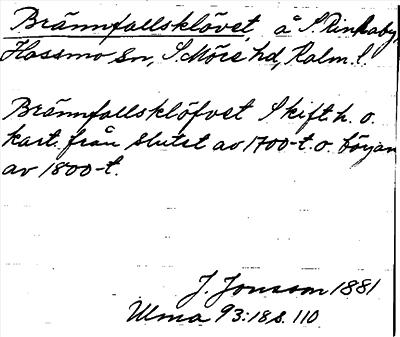 Brännfallsklövet, å S. Rinkaby,
Hossmo sn, S. Möre hd, Kalm. l.
Brännfallsklöfvet Skift. h. o.
kart. från slutet av 1700-t. o. början
av 1800-t.
J. Jonsson 1881
Ulma 93:18, s. 110